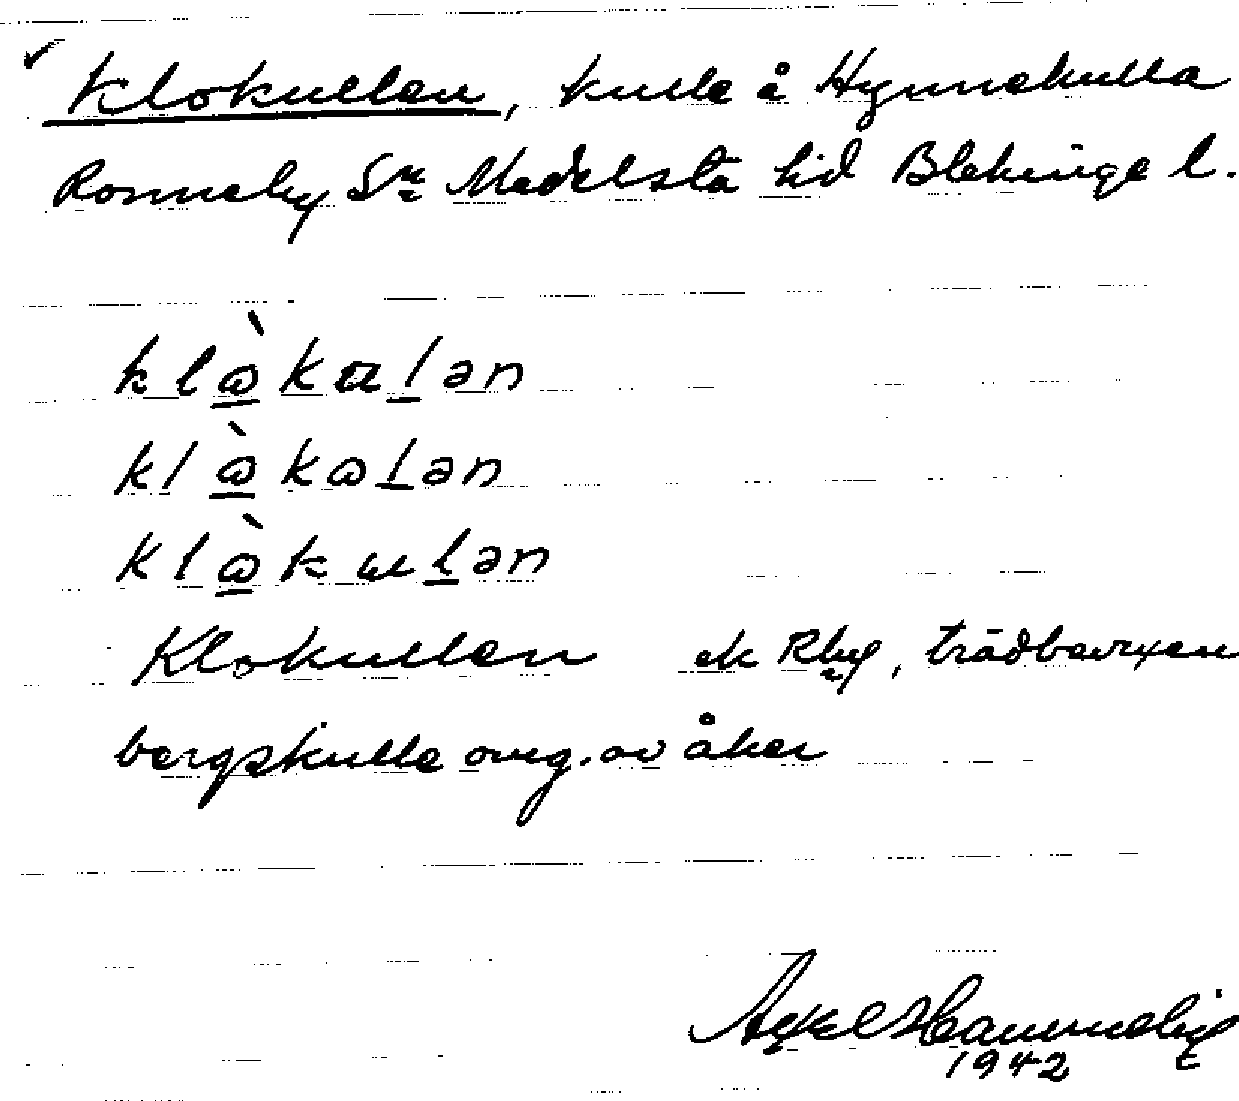 Klokullen, kulle å Hynnekulla
Ronneby Sn Medelsta hd Blekinge l.
klὼ̲kɑl̲ən
klὼ̲kωl̲ən
klὼ̲kɯl̲ən
Klokullen ek Rby, trädbevuxen
bergskulle omg. av åker
Axel
1942